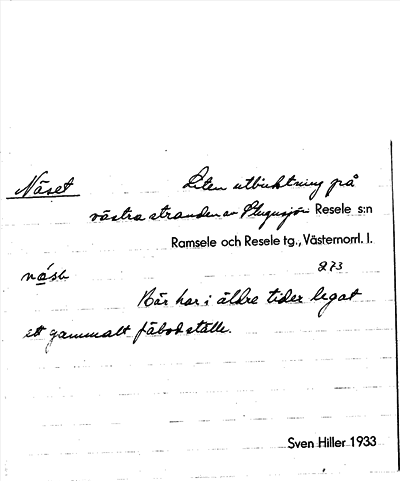 Näset
Liten utbuktning på
västra stranden av Resele s:n
Ramsele och Resele tg., Västernorrl. l.
273
Här har i äldre tider legat
ett gammalt fäbodställe.
Sven Hiller 1933